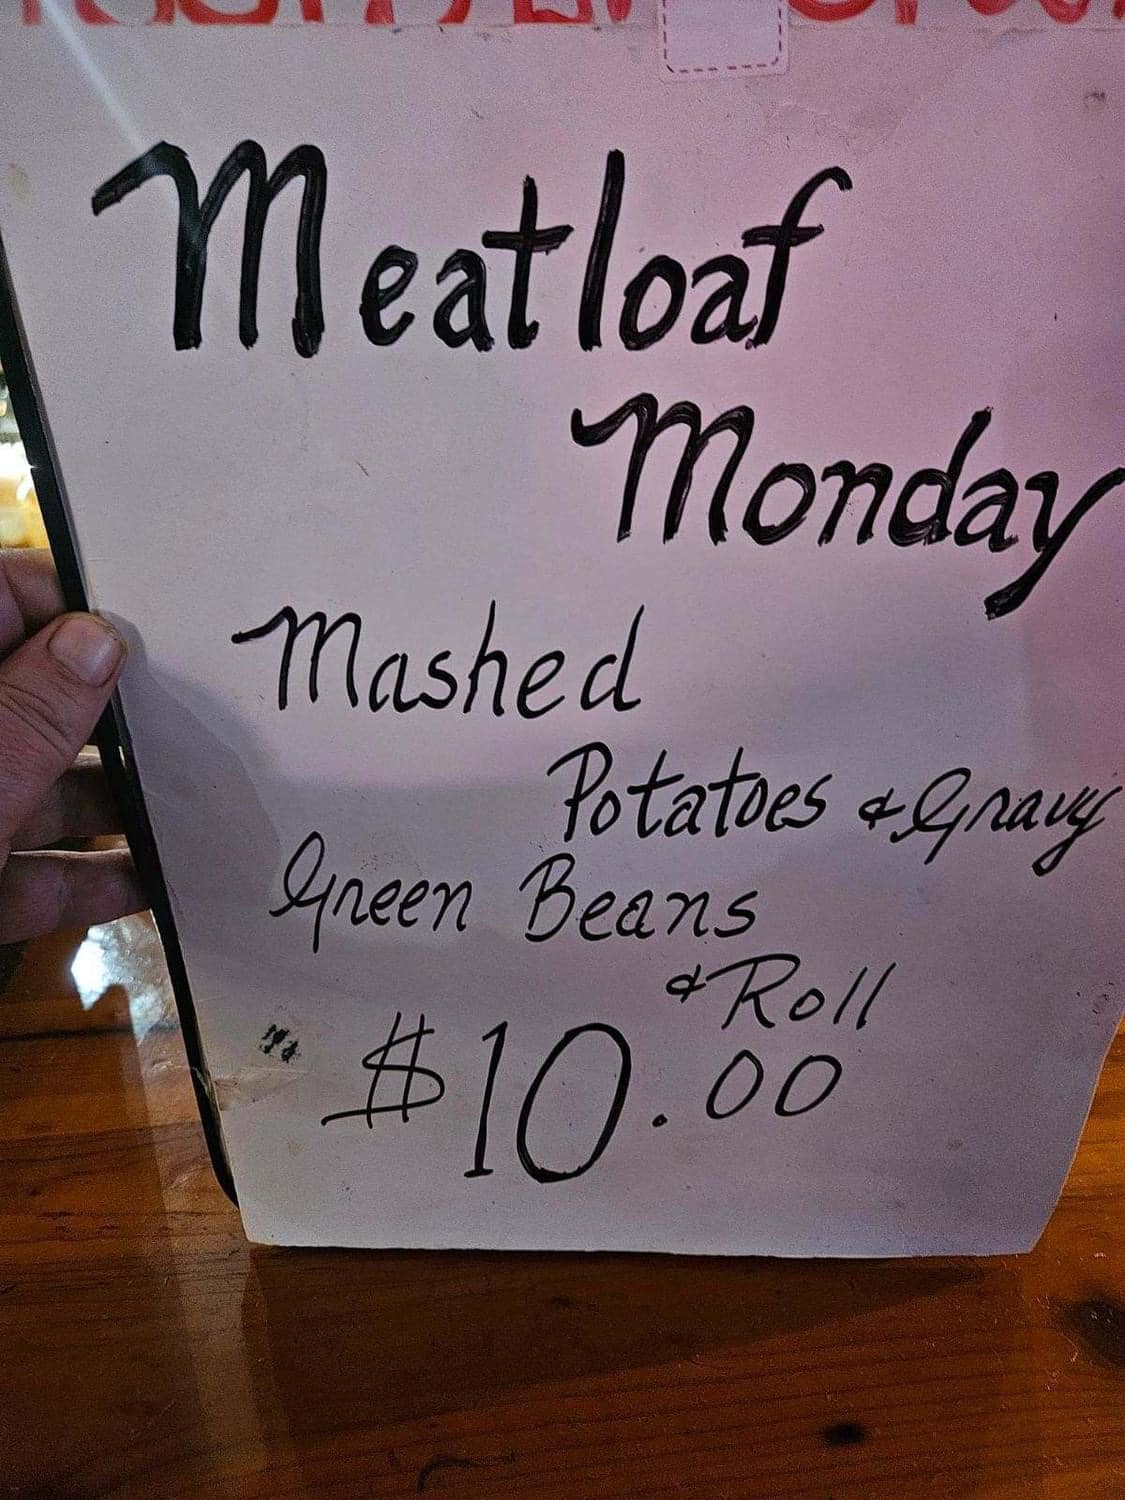 Meatloaf
Monday
Mashed
Potatoes & Gravy
Green Beans
& Roll
$10.00